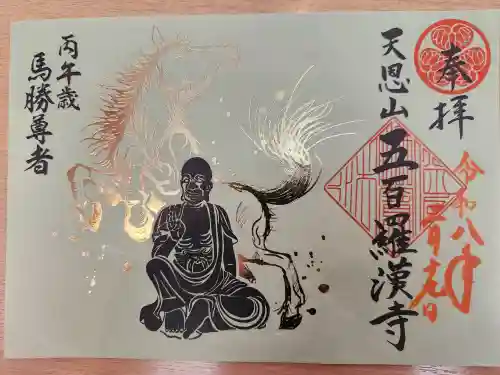 奉拝
天恩山五百羅漢寺
令和八年
一月元日
丙午歳
馬勝尊者